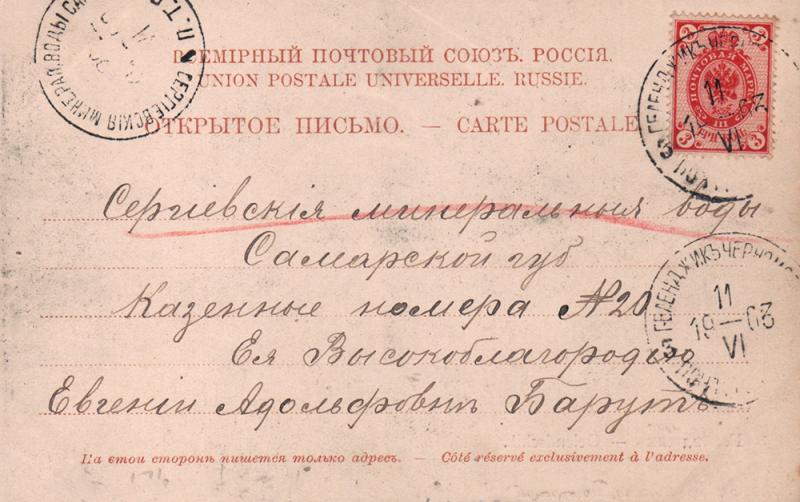 ВСЕМІРНЫЙ ПОЧТОВЫЙ СОЮЗЪ. РОССІЯ.
UNION POSTALE UNIVERSELLE. RUSSIE.
ОТКРЫТОЕ ПИСЬМО. — CARTE POSTALE
СЕРГІЕВСКІЯ МИНЕРАЛ. ВОДЫ САМ
П. Т.
3
ПОЧТОВАЯ МАРКА
3 3
ГЕЛЕНДЖИКЪ
11
VI
Сергіевскія минеральныя воды
Самарской губ
Казенные номера №20
Ея Высокоблагородію
Евгеніи Адольфовнѣ Барутъ
ГЕЛЕНДЖИКЪ ЧЕРНОМО
11
19—03
VI
На этой сторонѣ пишется только адресъ. — Côté réservé exclusivement à l'adresse.